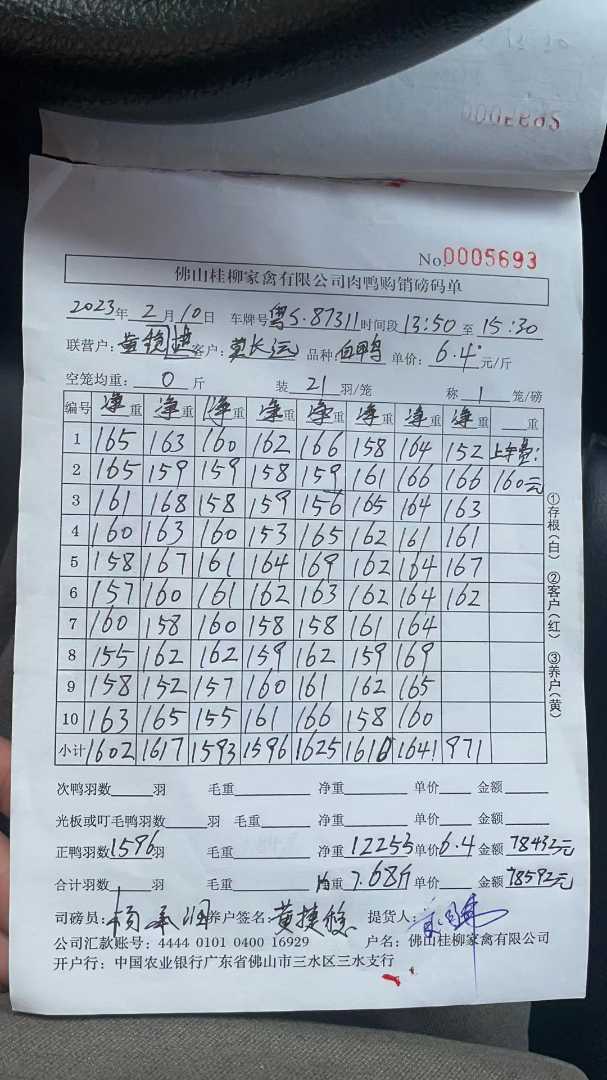 No.0005693
佛山桂柳家禽有限公司肉鸭购销磅码单
2023年 2月 10日 车牌号 粤S.87311 时间段 13:50 至 15:30
联营户: 客户: 品种: 白鸭 单价: 6.4 元/斤
空笼均重: 0 斤 装 21 羽/笼 称 1 笼/磅
编号 净重 净重 净重 净重 净重 净重 净重 净重 重
1 165 163 160 162 166 158 164 152 上车费:
2 165 159 159 158 159 161 166 166 160元
3 161 168 158 159 156 165 164 163
4 160 163 160 153 165 162 161 161
5 158 167 161 164 169 162 164 167
6 157 160 161 162 163 162 164 162
7 160 158 160 158 158 161 164
8 155 162 162 159 162 159 169
9 158 152 157 160 161 162 165
10 163 165 155 161 166 158 160
小计 1602 1617 1593 1596 1625 1610 1641 971
①存根(白) ②客户(红) ③养户(黄)
次鸭羽数 羽 毛重 净重 单价 金额
光板或叮毛鸭羽数 羽 毛重 净重 单价 金额
正鸭羽数 1596 羽 毛重 净重 12253 单价 6.4 金额 78432元
合计羽数 羽 毛重 均重 7.68斤 单价 金额 78592元
司磅员: 养户签名: 提货人:
公司汇款账号: 4444 0101 0400 16929 户名: 佛山桂柳家禽有限公司
开户行: 中国农业银行广东省佛山市三水区三水支行